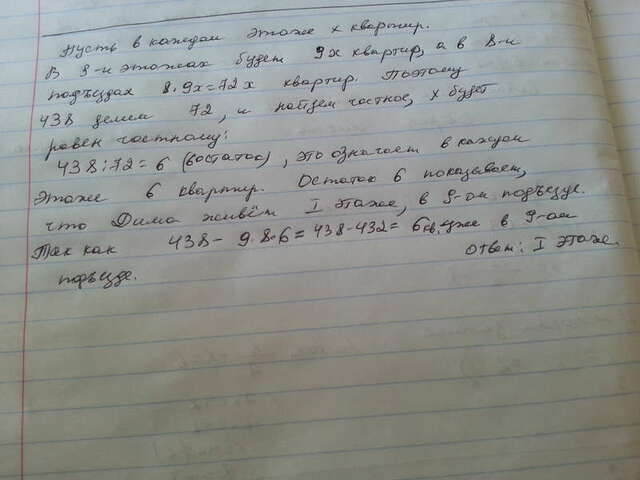 Пусть в каждом этаже x квартир.
В 9-и этажах будет 9x квартир, а в 8-и
подъездах 8·9x=72x квартир. Поэтому
438 делим 72, и найдем частное, x будет
равен частному:
438:72=6 (6остаток), это означает в каждом
этаже 6 квартир. Остаток 6 показывает,
что Дима живёт I этаже, в 9-ом подъезде.
Так как 438-9·8·6=438-432=6кв. уже в 9-ом
подъезде. Ответ: I этаже.